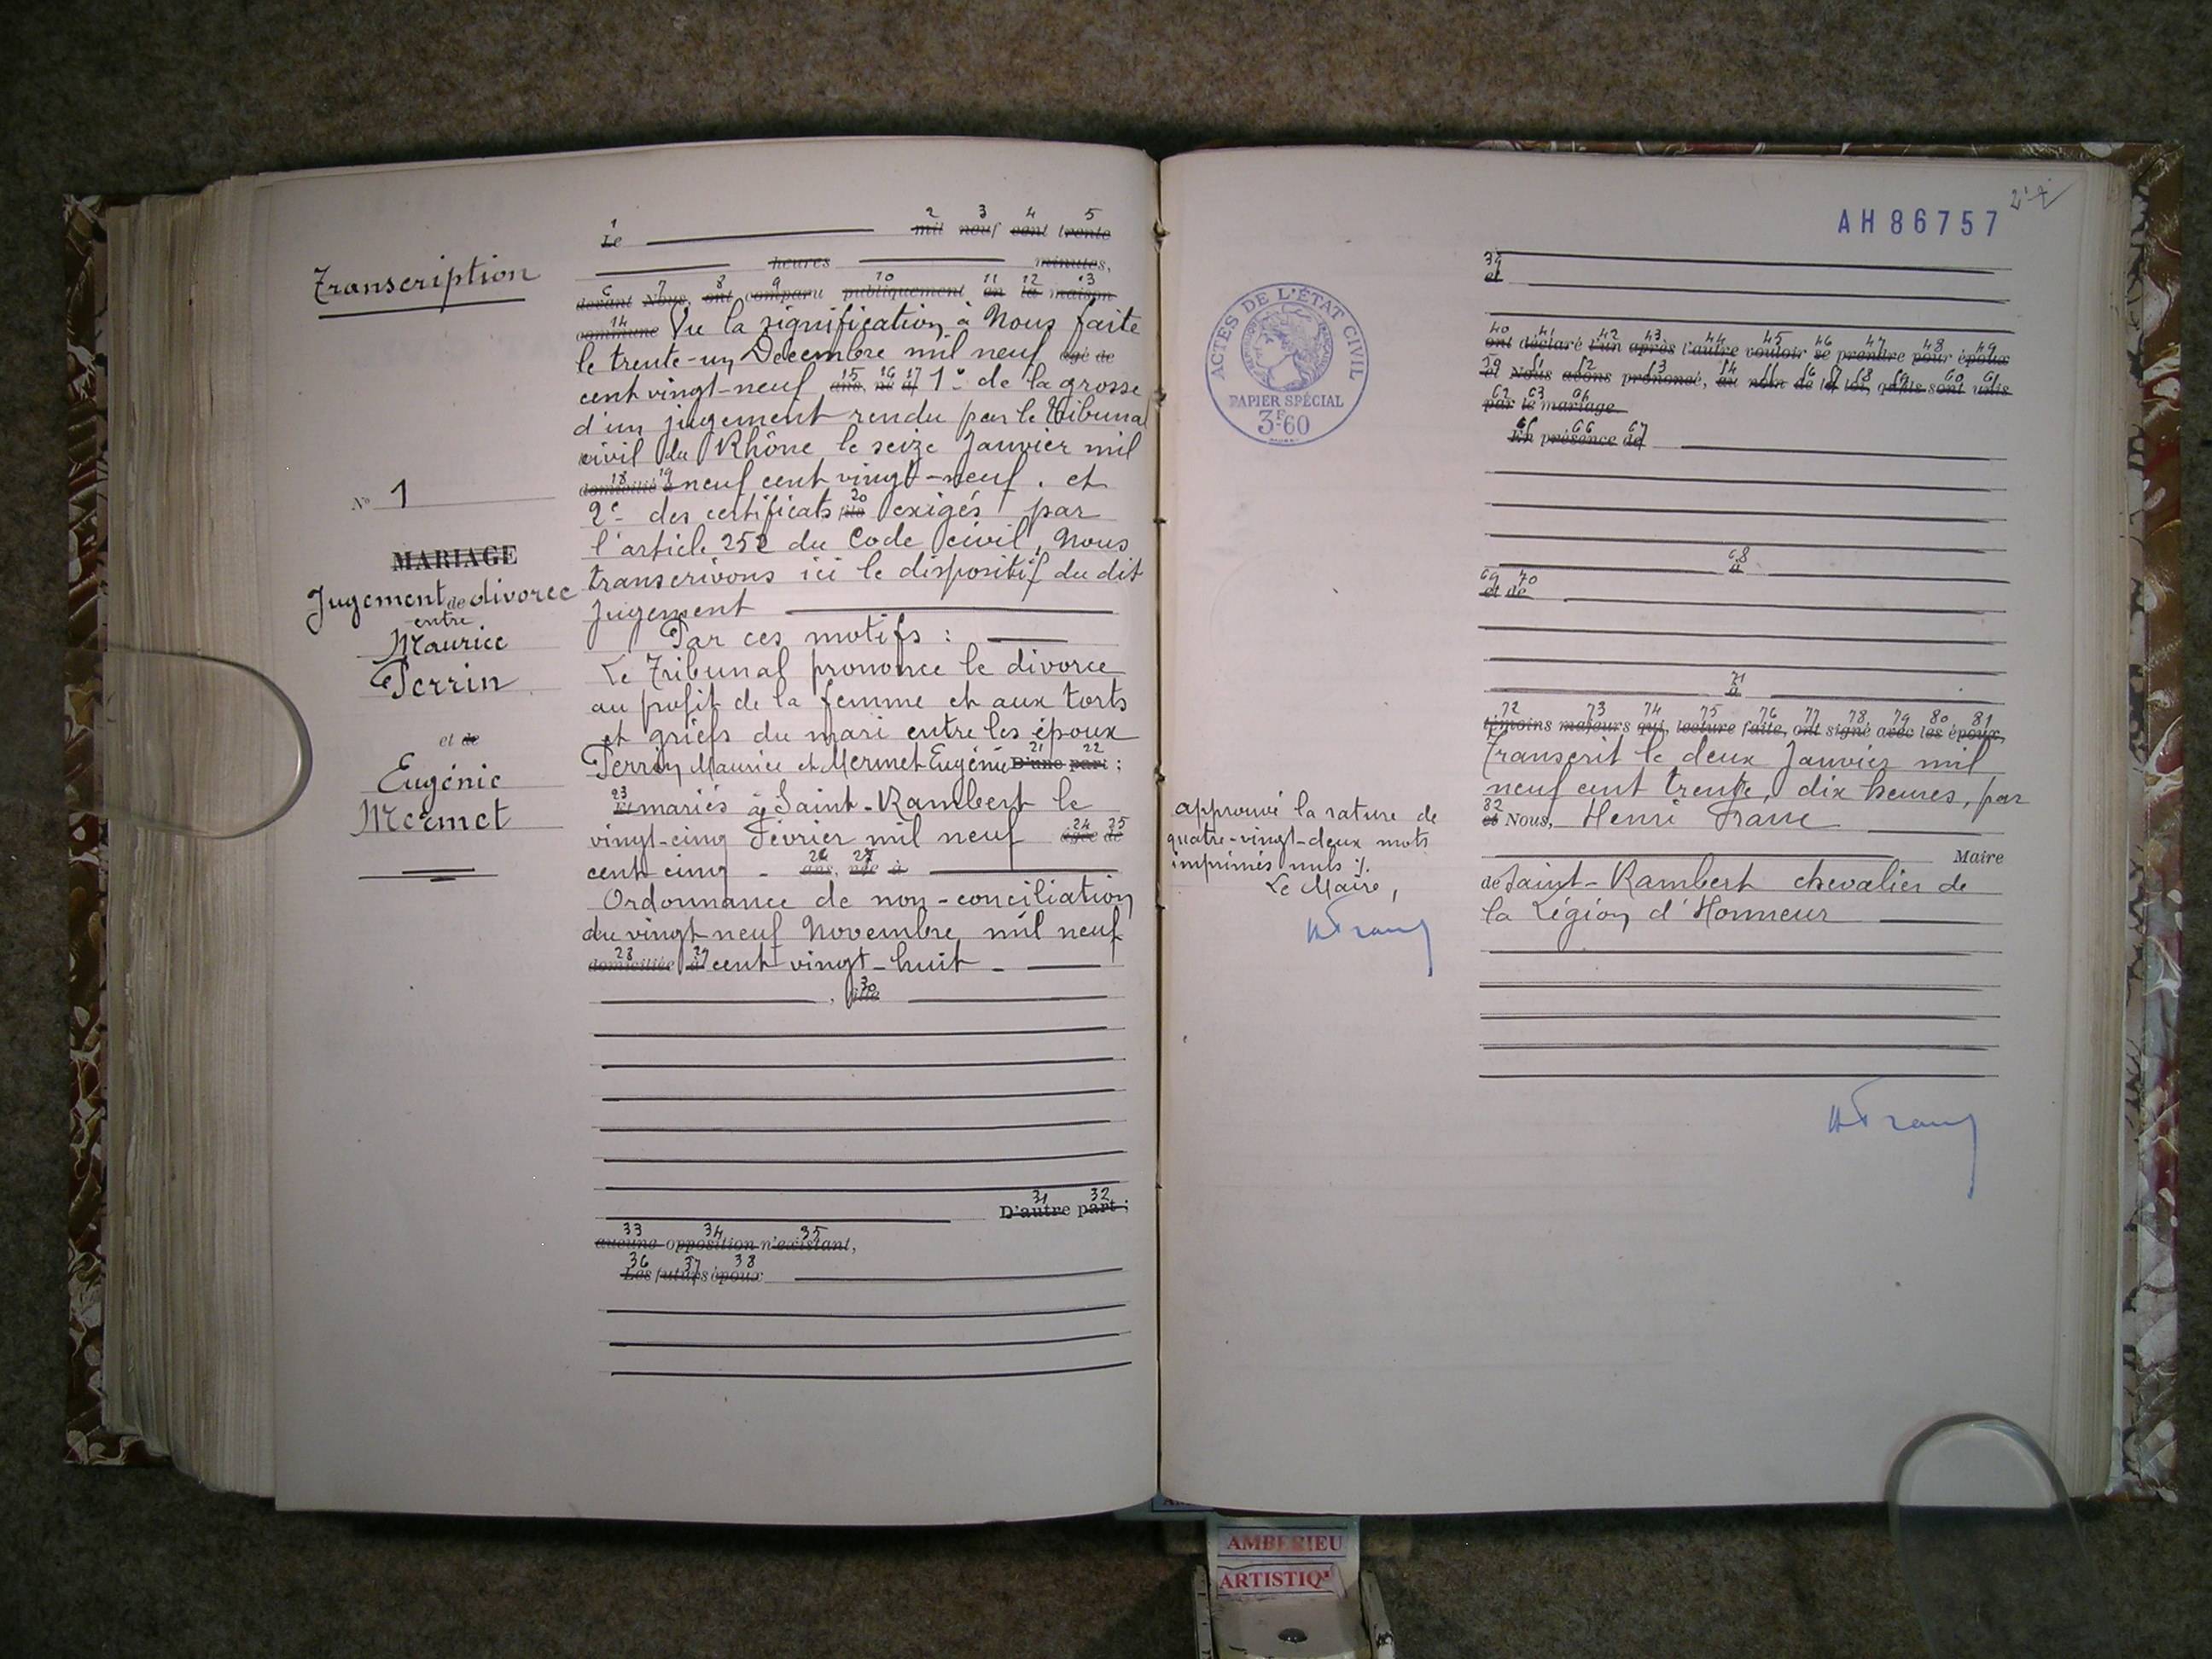 Transcription
N° 1
MARIAGE
Jugement de divorce
entre
Maurice
Perrin
et de
Eugénie
Mermet
1 2 3 4 5
Le mil neuf cent trente
heures minutes,
6 7 8 9 10 11 12 13
devant Nous, ont comparu publiquement en la maison
14
commune Vu la signification à Nous faite
le trente-un Décembre mil neuf agé de
15 16 17
cent vingt-neuf ans, né à 1° de la grosse
d'un jugement rendu par le Tribunal
civil du Rhône le seize Janvier mil
18 19
domicilié à neuf cent vingt-neuf. et
20
2° des certificats fils exigés par
l'article 252 du Code civil, Nous
transcrivons ici le dispositif du dit
jugement
Par ces motifs :
Le Tribunal prononce le divorce
au profit de la femme et aux torts
et griefs du mari entre les époux
21 22
Perrin Maurice et Mermet Eugénie D'une part ;
23
Et mariés à Saint-Rambert le
24 25
vingt-cinq Février mil neuf agée de
26 27
cent cinq - ans, née à
Ordonnance de non-conciliation
du vingt-neuf Novembre mil neuf
28 29
domiciliée à cent vingt-huit -
30
, fille
31 32
D'autre part ;
33 34 35
aucune opposition n'existant,
36 37 38
Les futurs époux
AH86757
ACTES DE L'ÉTAT CIVIL
PAPIER SPÉCIAL
3F60
39
et
40 41 42 43 44 45 46 47 48 49
ont déclaré l'un après l'autre vouloir se prendre pour époux
et Nous avons prononcé, au nom de la loi, qu'ils sont unis
62 63 64
par le mariage.
65 66 67
En présence de
68
à
69 70
et de
71
à
72 73 74 75 76 77 78 79 80 81
témoins majeurs qui, lecture faite, ont signé avec les époux,
Transcrit le deux Janvier mil
neuf cent trente, dix heures, par
82
et Nous, Henri Franc
Maire
de Saint-Rambert chevalier de
la Légion d'Honneur
approuvé la rature de
quatre-vingt-deux mots
imprimés nuls ./.
Le Maire,
HFranc
HFranc
AMBERIEU
ARTISTIQ